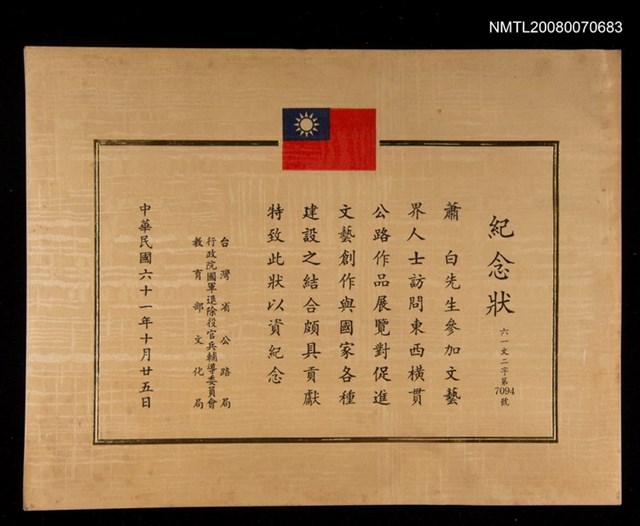 NMTL20080070683
紀念狀
六一文二字第7094號
蕭　白先生參加文藝
界人士訪問東西橫貫
公路作品展覽對促進
文藝創作與國家各種
建設之結合頗具貢獻
特致此狀以資紀念
台灣省公路局
行政院國軍退除役官兵輔導委員會
教育部文化局
中華民國六十一年十月廿五日